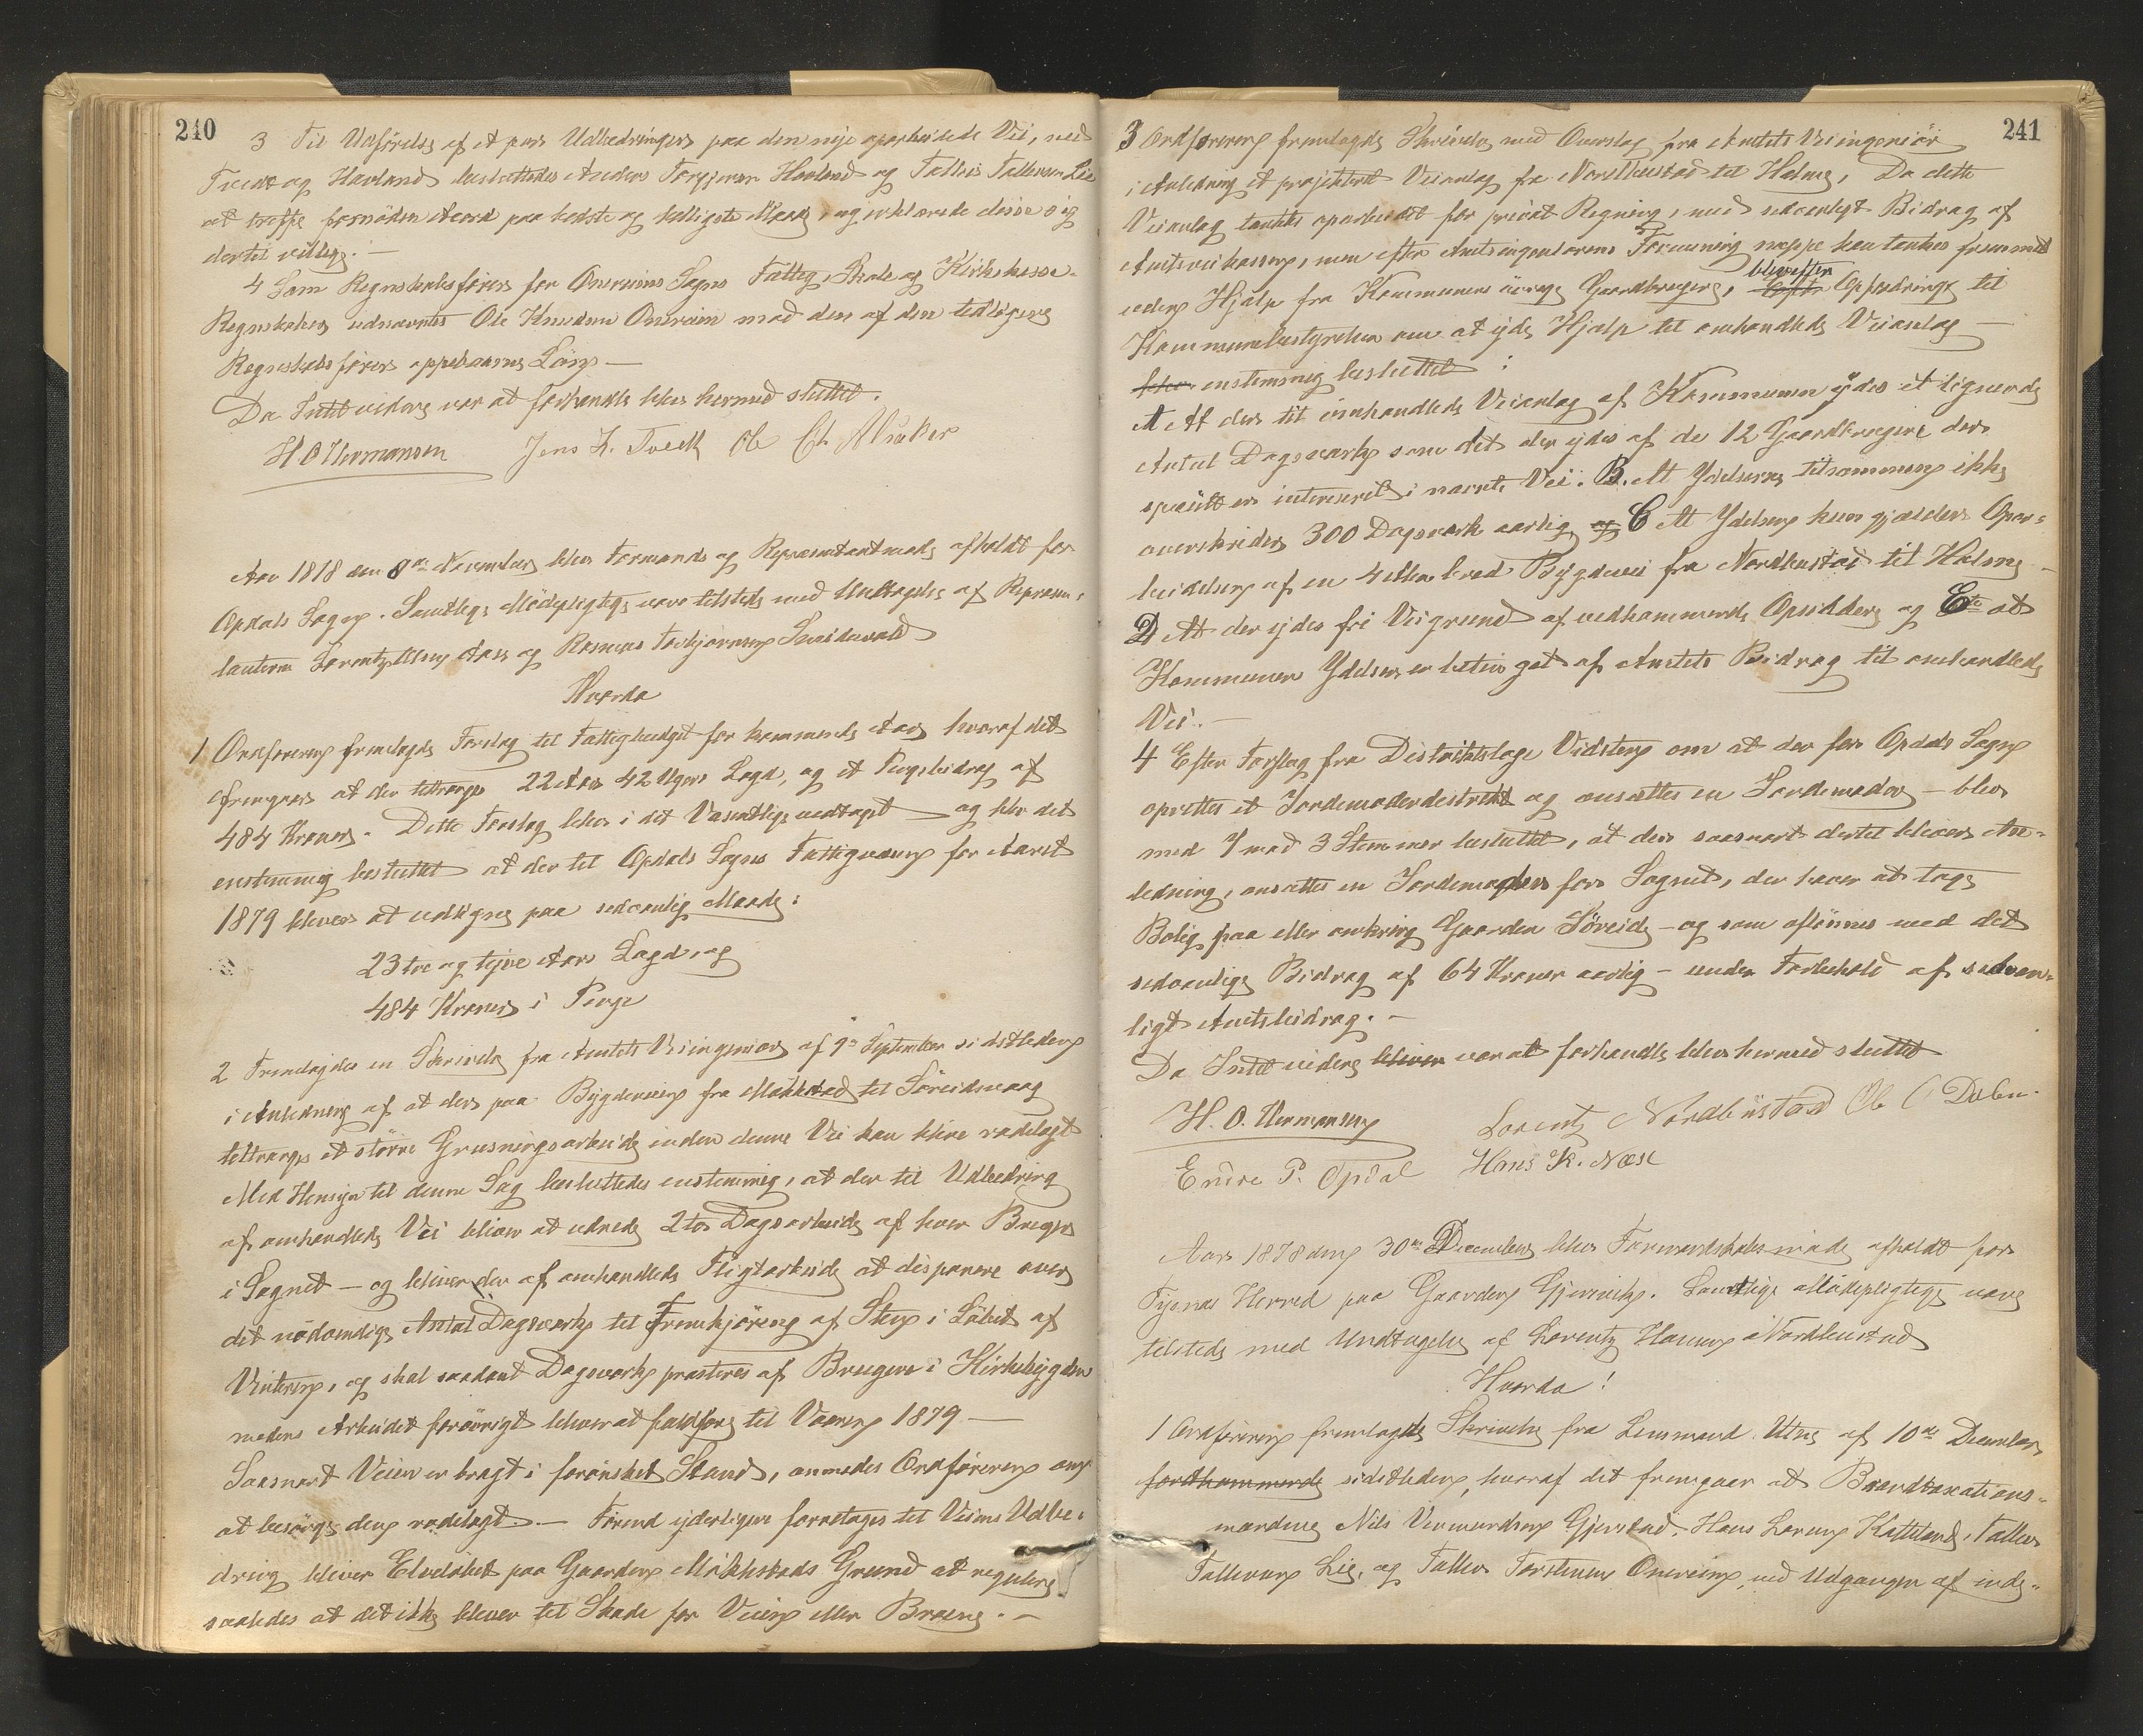 240
3 Til Udførelse af et pars Udbedringer paa den nye oparbeidede Vei, ved
Tvedt og Havland besluttedes Anders Torgjersen Havland og Tollevs Tollevsen Lie
at treffe fornöden Accord paa bedste og billigste Maade, og erklærede disse sig
dertil villige. —
4 Som Regnskabsfører for Onereims Sogns Fattig, Skole og Kirkekasse-
Regnskaber udnævntes Ole Knudsen Onereim mod den af den tidligere
Regnskabsfører oppebaarne Lön —
Da Intet videre var at forhandle blev hermed sluttet.
H O Hermansen Jens L. Tvedt Ole Ch Aksaker
Aar 1818 den 8de November blev Formands og Repræsentantmøde afholdt for
Opdals Sogn. Samtlige Mödepligtige vare tilstede med Undtagelse af Repræsen-
tanterne Lorentz Olsen Aase og Rasmus Torbjørnsen Sneidevald
Hvorda
1 Ordføreren fremlagde Forslag til Fattigbudget for kommende Aar hvoraf det
fremgaar at der tiltrænges 22 Aar 42 Ugers Lægd, og et Pengebidrag af
484 Kroner. Dette Forslag blev i det Væsentlige vedtaget — og blev det
enstemmig besluttet at der til Opdals Sogns Fattigvæsen for Aaret
1879 bliver at udligne paa sedvanlig Maade:
23 tre og tyve Aars Lægd, og
484 Kroner i Penge
2 Fremlagdes en Skrivelse fra Amtets Veiingeniör af 9de September sidstleden
i Anledning af at der paa Bygdeveien fra Mökkestad til Söreidsvaag
tiltrænges et större Grusningsarbeide inden denne Vei kan blive rodelagt
Med Hensyn til denne Sag besluttedes enstemmig, at der til Udbedring
af omhandlede Vei bliver at udrede 2 to Dagsarbeide af hver Bruger
i Sognet — og bliver der af omhandlede Pligtarbeide at disponere over
det nödvendige Antal Dagsverk til Fremkjöring af Sten i Löbet af
Vinteren, og skal saadant Dagsverk præsteres af Brugere i Kirkebygden
medens Arbeidet forövrigt bliver at fuldföre til Vaaren 1879 —
Saasnart Veien er bragt i forönsket Stand, anmodes Ordføreren om
at besörge den rodelagt. — Forend yderligere foretages til Veiens Udbe-
dring bliver Elvelöbet paa Gaarden Mökkestads Grund at regulere
saaledes at det ikke bliver til Skade for Veien eller Broene. —
241
3 Ordføreren fremlagde Skrivelse med Overslag fra Amtets Veiingeniör
i Anledning et projekteret Veianlæg fra Nordbustad til Holme, Da dette
Veianlæg tænktes oparbeidet for privat Regning, med sedvanligt Bidrag af
Amtsveikassen, men efter Amtsingeniørens Formening neppe kan tænkes fremmet
uden Hjælp fra Kommunens övrige Gaardbrugere, blev efter Opfordring til
Kommunebestyrelsen om at yde Hjælp til omhandlede Veianlæg —
enstemmig besluttet :
A At der til omhandlede Veianlæg af Kommunen ydes et lignende
Antal Dagsverk som det der ydes af de 12 Gaardbrugere der
specielt er interesseret i nævnte Vei. B. At Ydelserne tilsammen ikke
overskrider 300 Dagsverk aarlig og C At Ydelsen kun gjælder Opar-
beidelsen af en 4 Alen bred Bygdevei fra Nordbustad til Holme —
D At der ydes fri Veigrund af vedkommende Opsiddere og Ete at
Kommunens Ydelser er betinget af Amtets Bidrag til omhandlede
Vei. —
4 Efter Forslag fra Distriktslæge Vidsteen om at der for Opdals Sogn
oprettes et Jordemoderdestrikt og ansættes en Jordemoder — blev
med 7 mod 3 Stemmer besluttet, at der saasnart dertil bliver An-
ledning, ansættes en Jordemoder for Sognet, der haver at tage
Bolig paa eller omkring Gaarden Söreide — og som aflönnes med det
sedvanlige Bidrag af 64 Kroner aarlig — under Forbehold af sædvan-
ligt Amtsbidrag. —
Da Intet videre bliver var at forhandle blev hermed sluttet
H. O. Hermansen Lorentz Nordbüstad Ole C Dalen
Endre P. Opdal Hans K. Næse
Aar 1878 den 30te December blev Formandskabsmöde afholdt for
Tysnæs Herred paa Gaarden Gjerevik. Samtlige Mödepligtige vare
tilstede med Undtagelse af Lorentz Hansen Nordbustad
Hvorda !
1 Ordföreren fremlagde Skrivelse fra Lensmand Utne af 10de December
forthkommende sidstleden, hvoraf det fremgaar at Brandtaxations-
mændene Nils Vermundsen Gjerstad, Hans Larsen Katteland, Tollev
Tollevsen Lie, og Tollev Torstensen Onereim, ved Udgangen af inde-